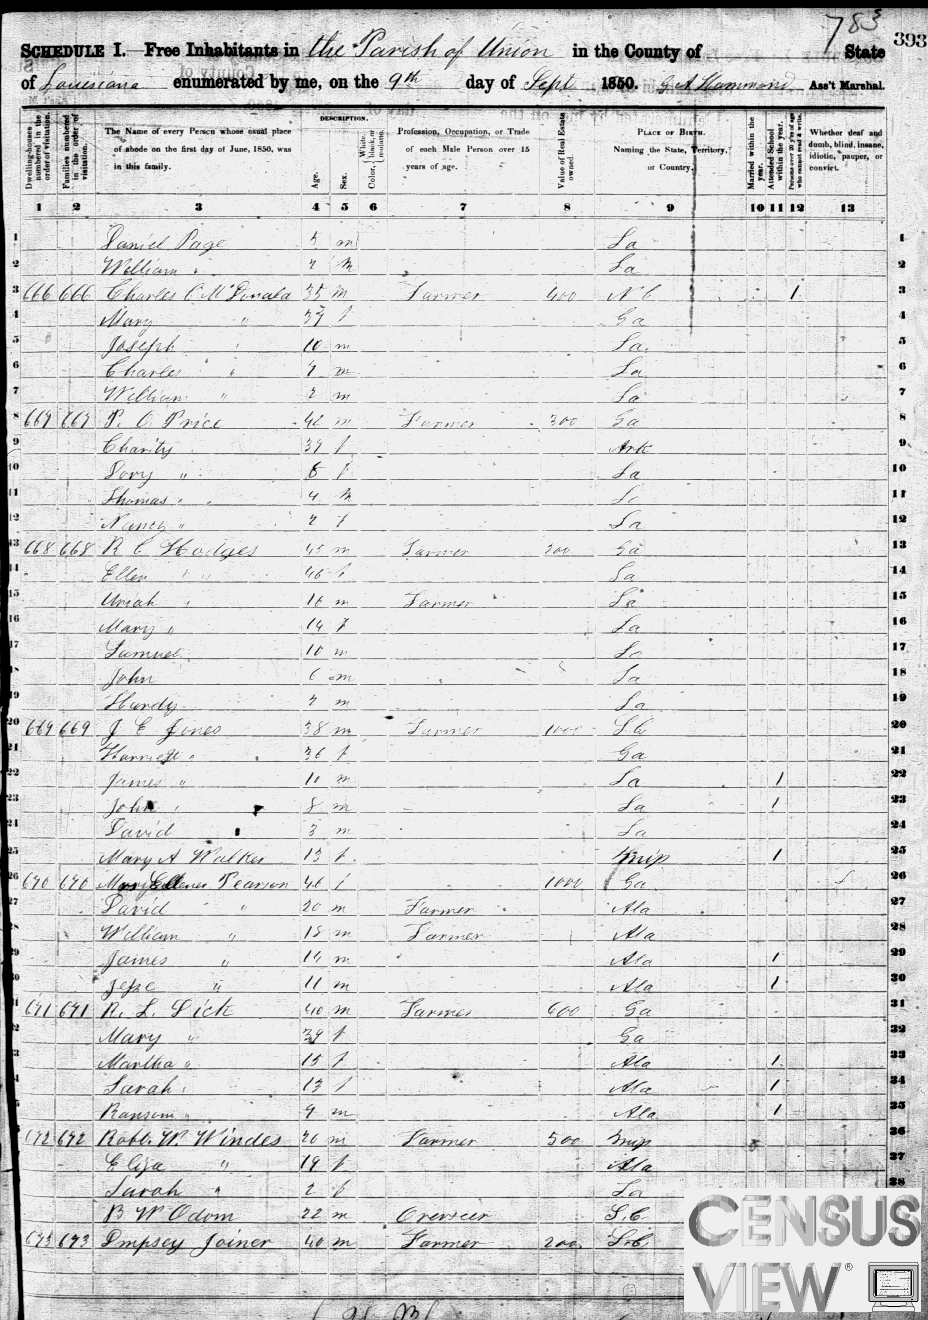 783
393
SCHEDULE I.—Free Inhabitants in the Parish of Union in the County of State
of Louisiana enumerated by me, on the 9th day of Sept 1850. Ass't Marshal.
Dwelling-houses numbered in the order of visitation.
Families numbered in the order of visitation.
The Name of every Person whose usual place of abode on the first day of June, 1850, was in this family.
DESCRIPTION.
Age.
Sex.
Color, White, black, or mulatto.
Profession, Occupation, or Trade of each Male Person over 15 years of age.
Value of Real Estate owned.
PLACE OF BIRTH. Naming the State, Territory, or Country.
Married within the year.
Attended School within the year.
Persons over 20 y'rs of age who cannot read & write.
Whether deaf and dumb, blind, insane, idiotic, pauper, or convict.
1 2 3 4 5 6 7 8 9 10 11 12 13
1 Daniel Page m La 1
2 William " m La 2
3 666 666 Charles C McDonald 35 m Farmer 400 N C 1 3
4 Mary " f Ga 4
5 Joseph " 10 m La 5
6 Charles " m La 6
7 William " m La 7
8 Price m Farmer 300 Ga 8
9 Charity f Ark 9
10 " f La 10
11 Thomas " 4 m La 11
12 Nancy " f La 12
13 668 668 R C Hodges 45 m Farmer Ga 13
14 Ellen " 46 f 14
15 Uriah " 16 m Farmer La 15
16 Mary " 14 f La 16
17 Samuel 10 m La 17
18 John 6 m La 18
19 Hardy m La 19
20 669 669 J E Jones 38 m Farmer 1000 20
21 Harriett " 36 f Ga 21
22 James " 10 m La 1 22
23 John " 8 m La 1 23
24 David 3 m La 24
25 Mary A Walker 13 f 1 25
26 670 670 Pearson 46 f 1000 Ga 26
27 David " 20 m Farmer Ala 27
28 William " 18 m Farmer Ala 28
29 James " 14 m Ala 1 29
30 Jesse " 11 m Ala 1 30
31 671 671 R. L. Dick 40 m Farmer 600 Ga 31
Mary " 39 f Ga 32
Martha " 15 f Ala 1 33
Sarah " 13 f Ala 1 34
Ransom " 9 m Ala 1 35
672 672 Robt. W Windes 26 m Farmer 500 36
Eliza " 19 f Ala 37
Sarah " 2 f La 38
B W Odom 22 m Overseer S.C
673 673 Dempsey Joiner 40 m Farmer 200 S.C.
CENSUS
VIEW®